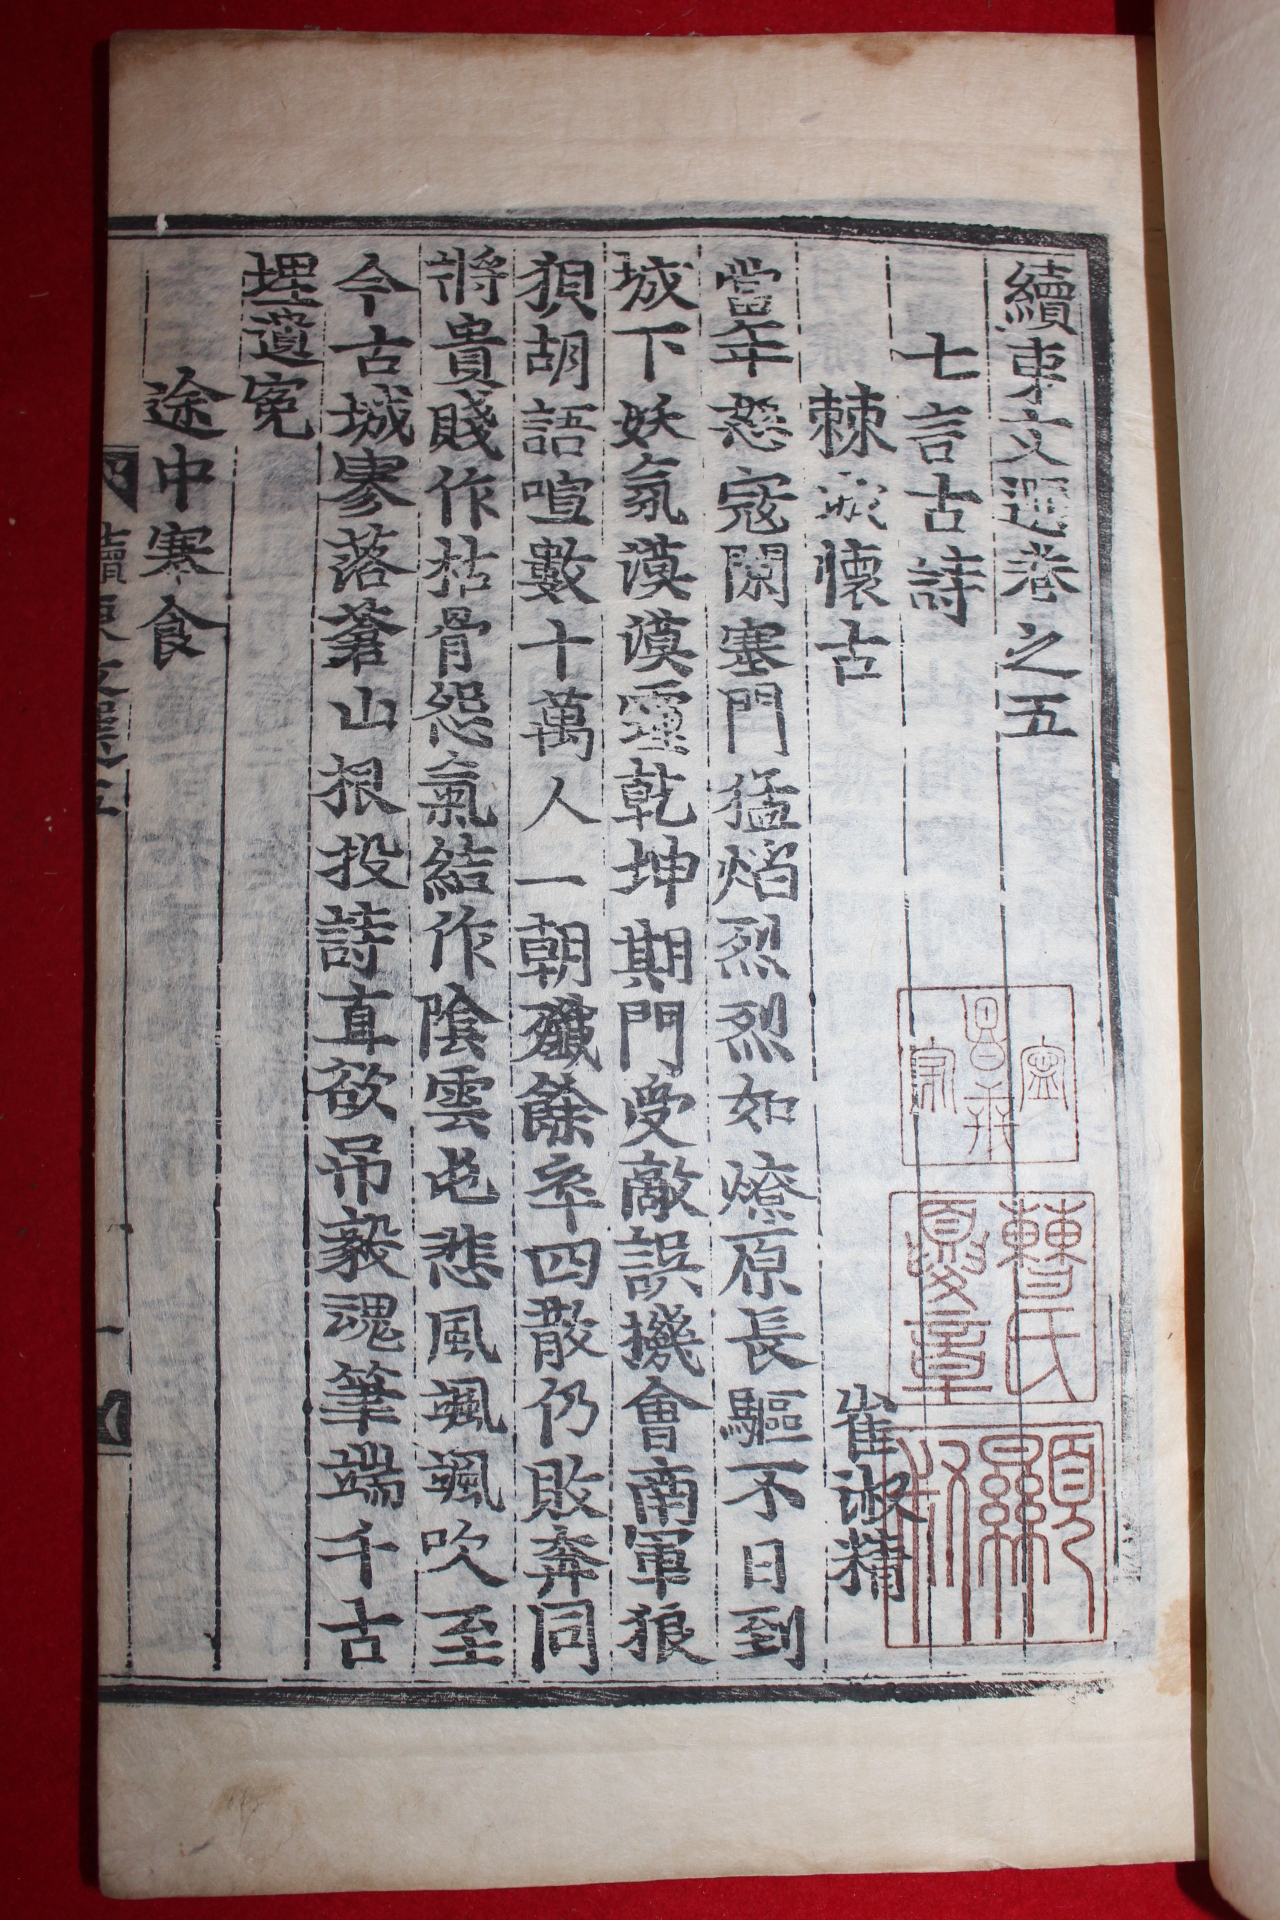 續東文選卷之五
七言古詩
棘城懷古 崔淑精
當年寇闌塞門猛焰烈烈如燎原長驅不日到
城下妖氛漠漠霾乾坤期門受敵誤機會南軍狼
狽胡語喧數十萬人一朝殲餘卒四散仍敗奔同
將貴賤作枯骨怨氣結作陰雲屯悲風颯颯吹至
今古城寥落蒼山根投詩直欲吊毅魂筆端千古
埋遺寃
途中寒食
續東文選五 一